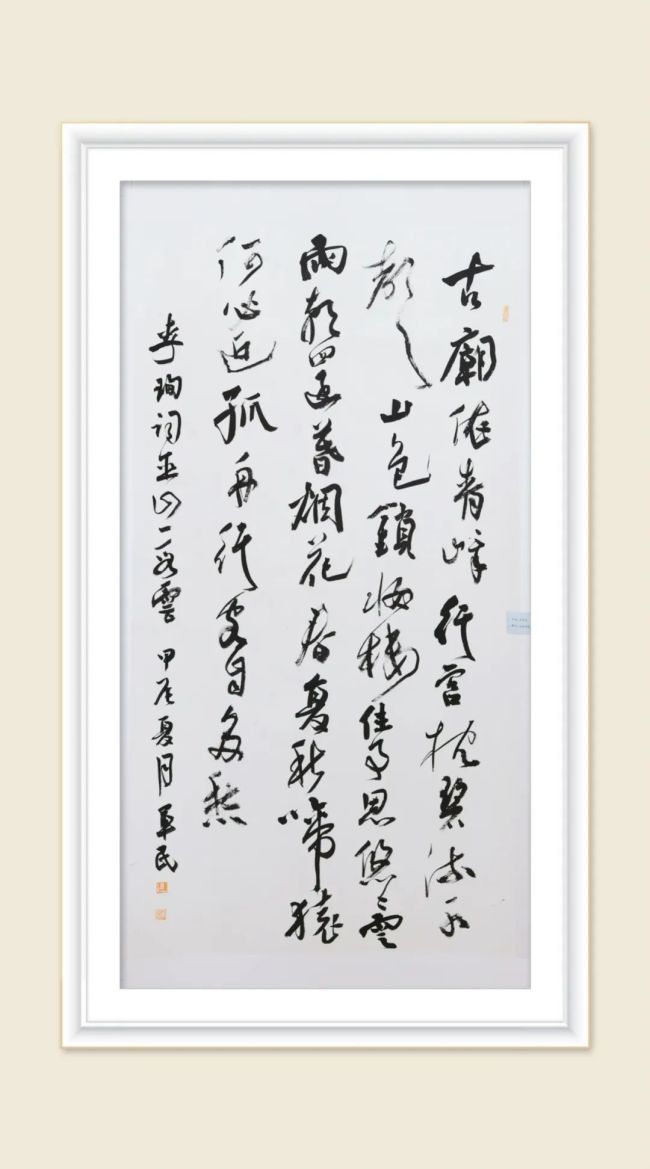 古廟依青嶂行宮枕碧流水
聲山色鎖妝樓往事思悠〻雲
雨朝還暮烟花春复秋啼猿
何必近孤舟行客自多愁
李珣詞巫山一段雲 甲辰夏月 民